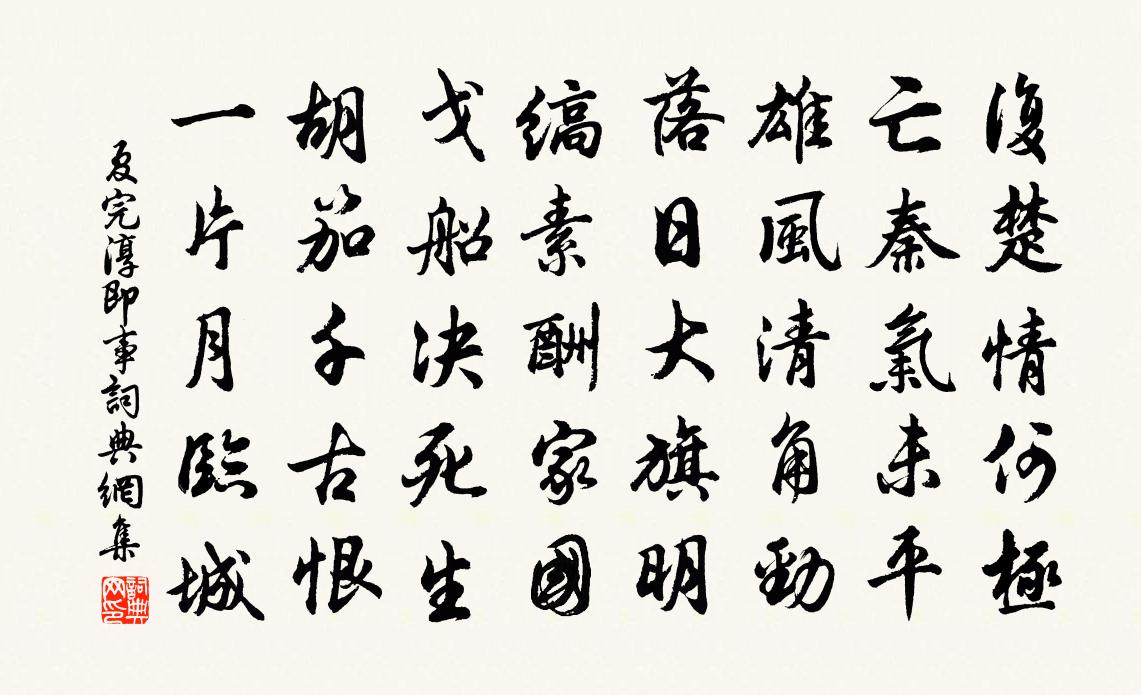 復楚情何極
亡秦氣未平
雄風清角勁
落日大旗明
縞素酬家國
戈船決死生
胡笳千古恨
一片月臨城
夏完淳即事詞典網集
詞典网印